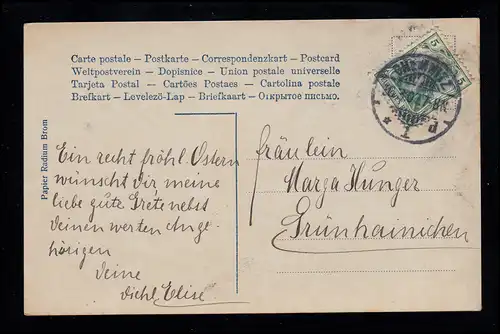 Carte postale – Postkarte – Correspondenzkart – Postcard
Weltpostverein – Dopisnice – Union postale universelle
Tarjeta Postal – Cartões Postaes – Cartolina postale
Brefkort – Levelező-Lap – Briefkaart – Открытое письмо.
Papier Radium Brom
Ein recht fröhl. Ostern
wünscht Dir meine
liebe gute Grete nebst
Deinen werten Ange-
hörigen
Deine
Elise.
5
5
Fräulein
Marga Hunger
Grünhainichen